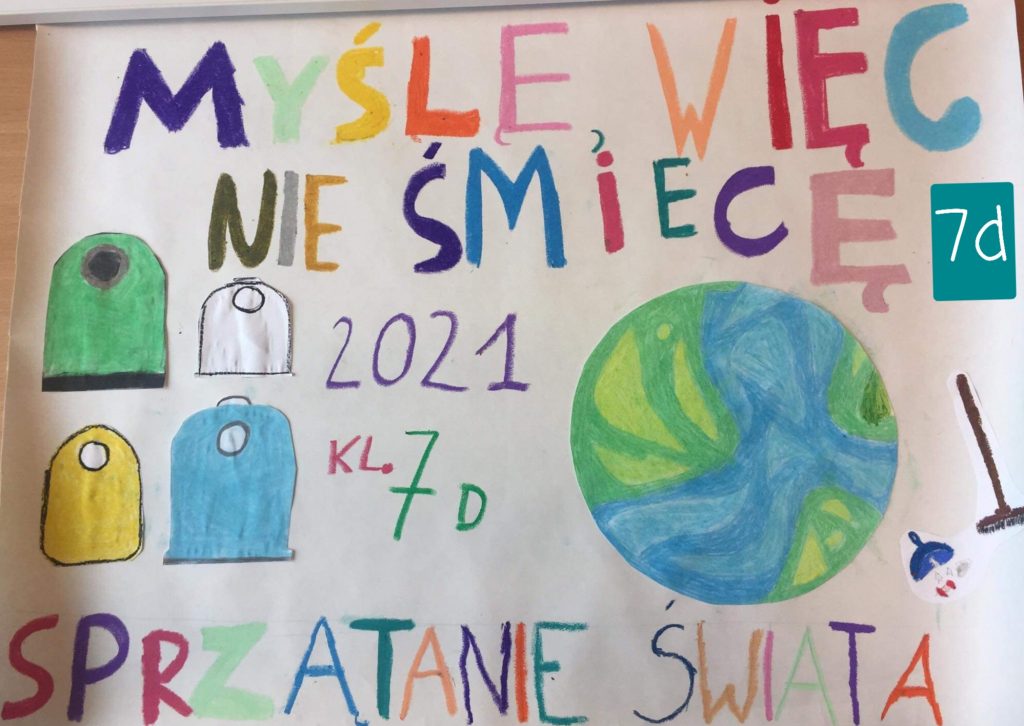 MYŚLE, WIĘC
NIE ŚMiECĘ
7d
2021
KL. 7 D
SPRZĄTANIE ŚWIATA